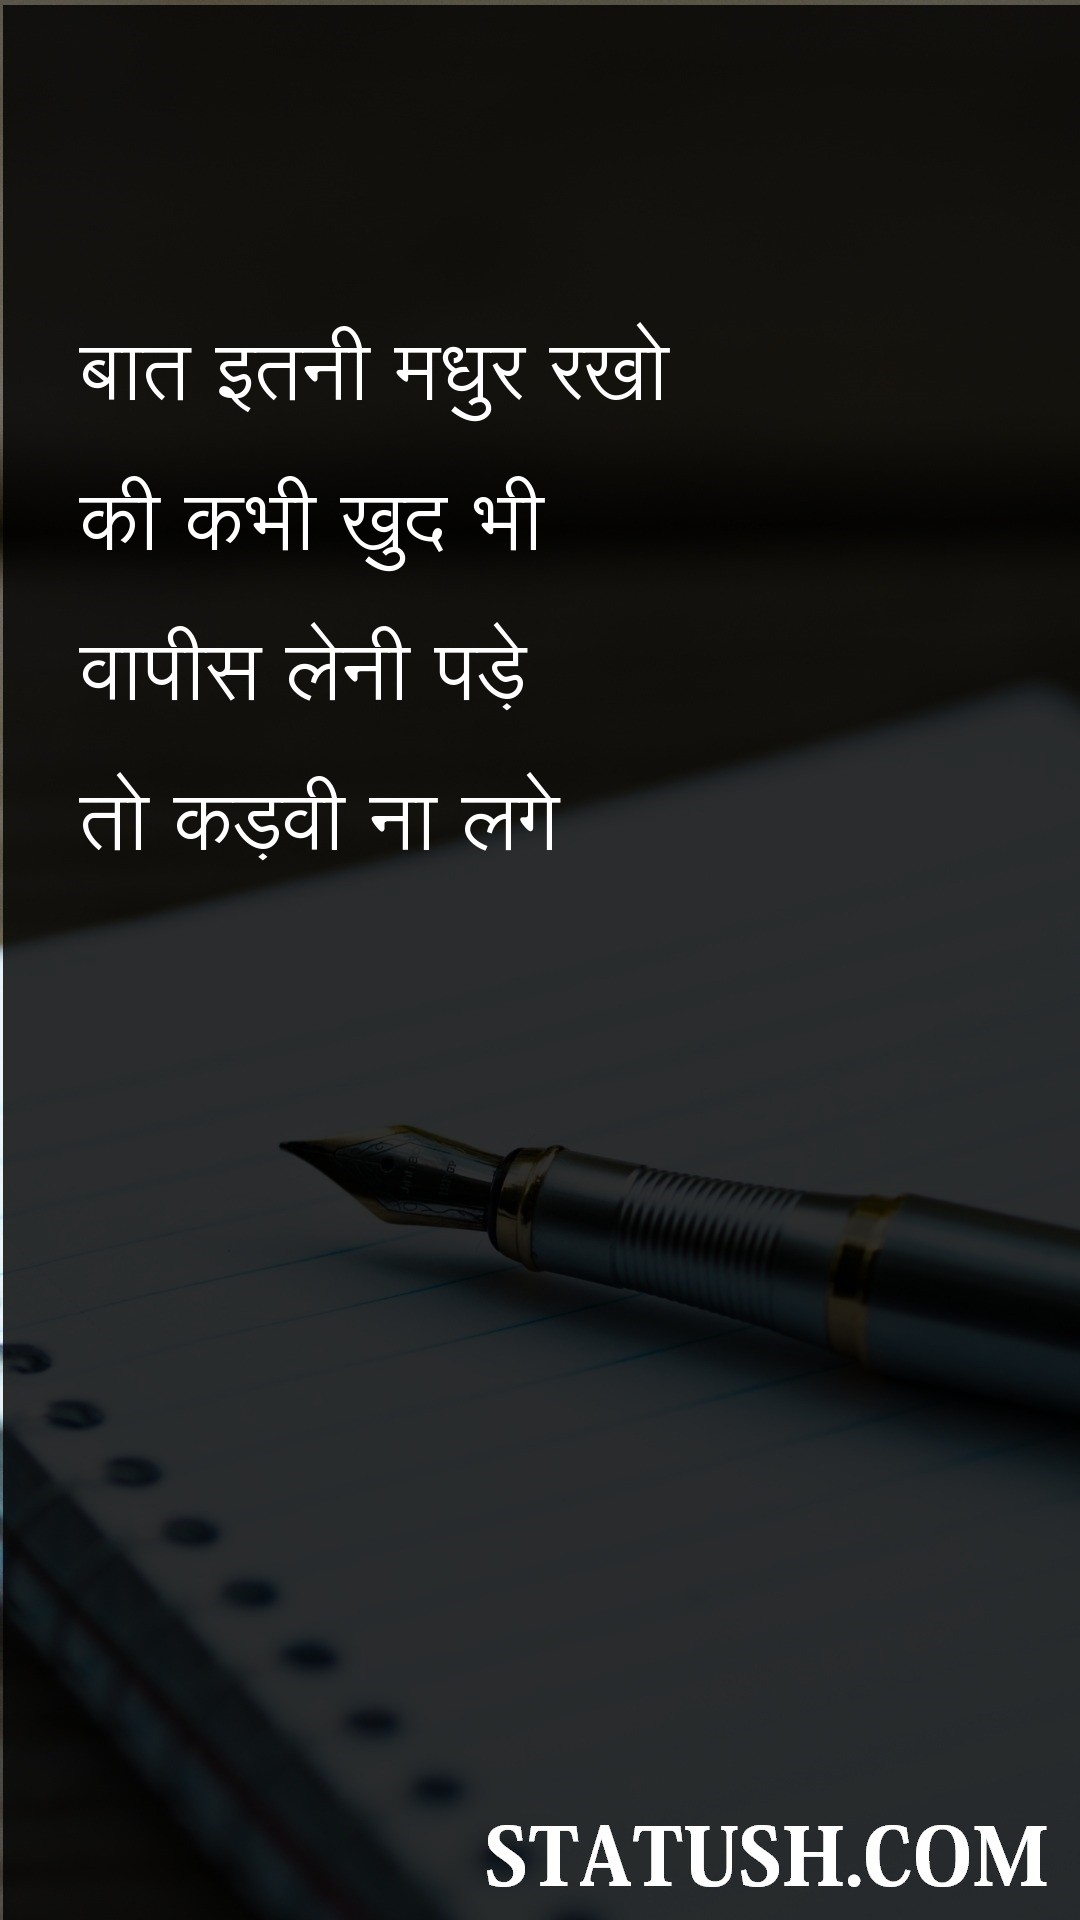 बात इतनी मधुर रखो
की कभी खुद भी
वापीस लेनी पड़े
तो कड़वी ना लगे
STATUSH.COM